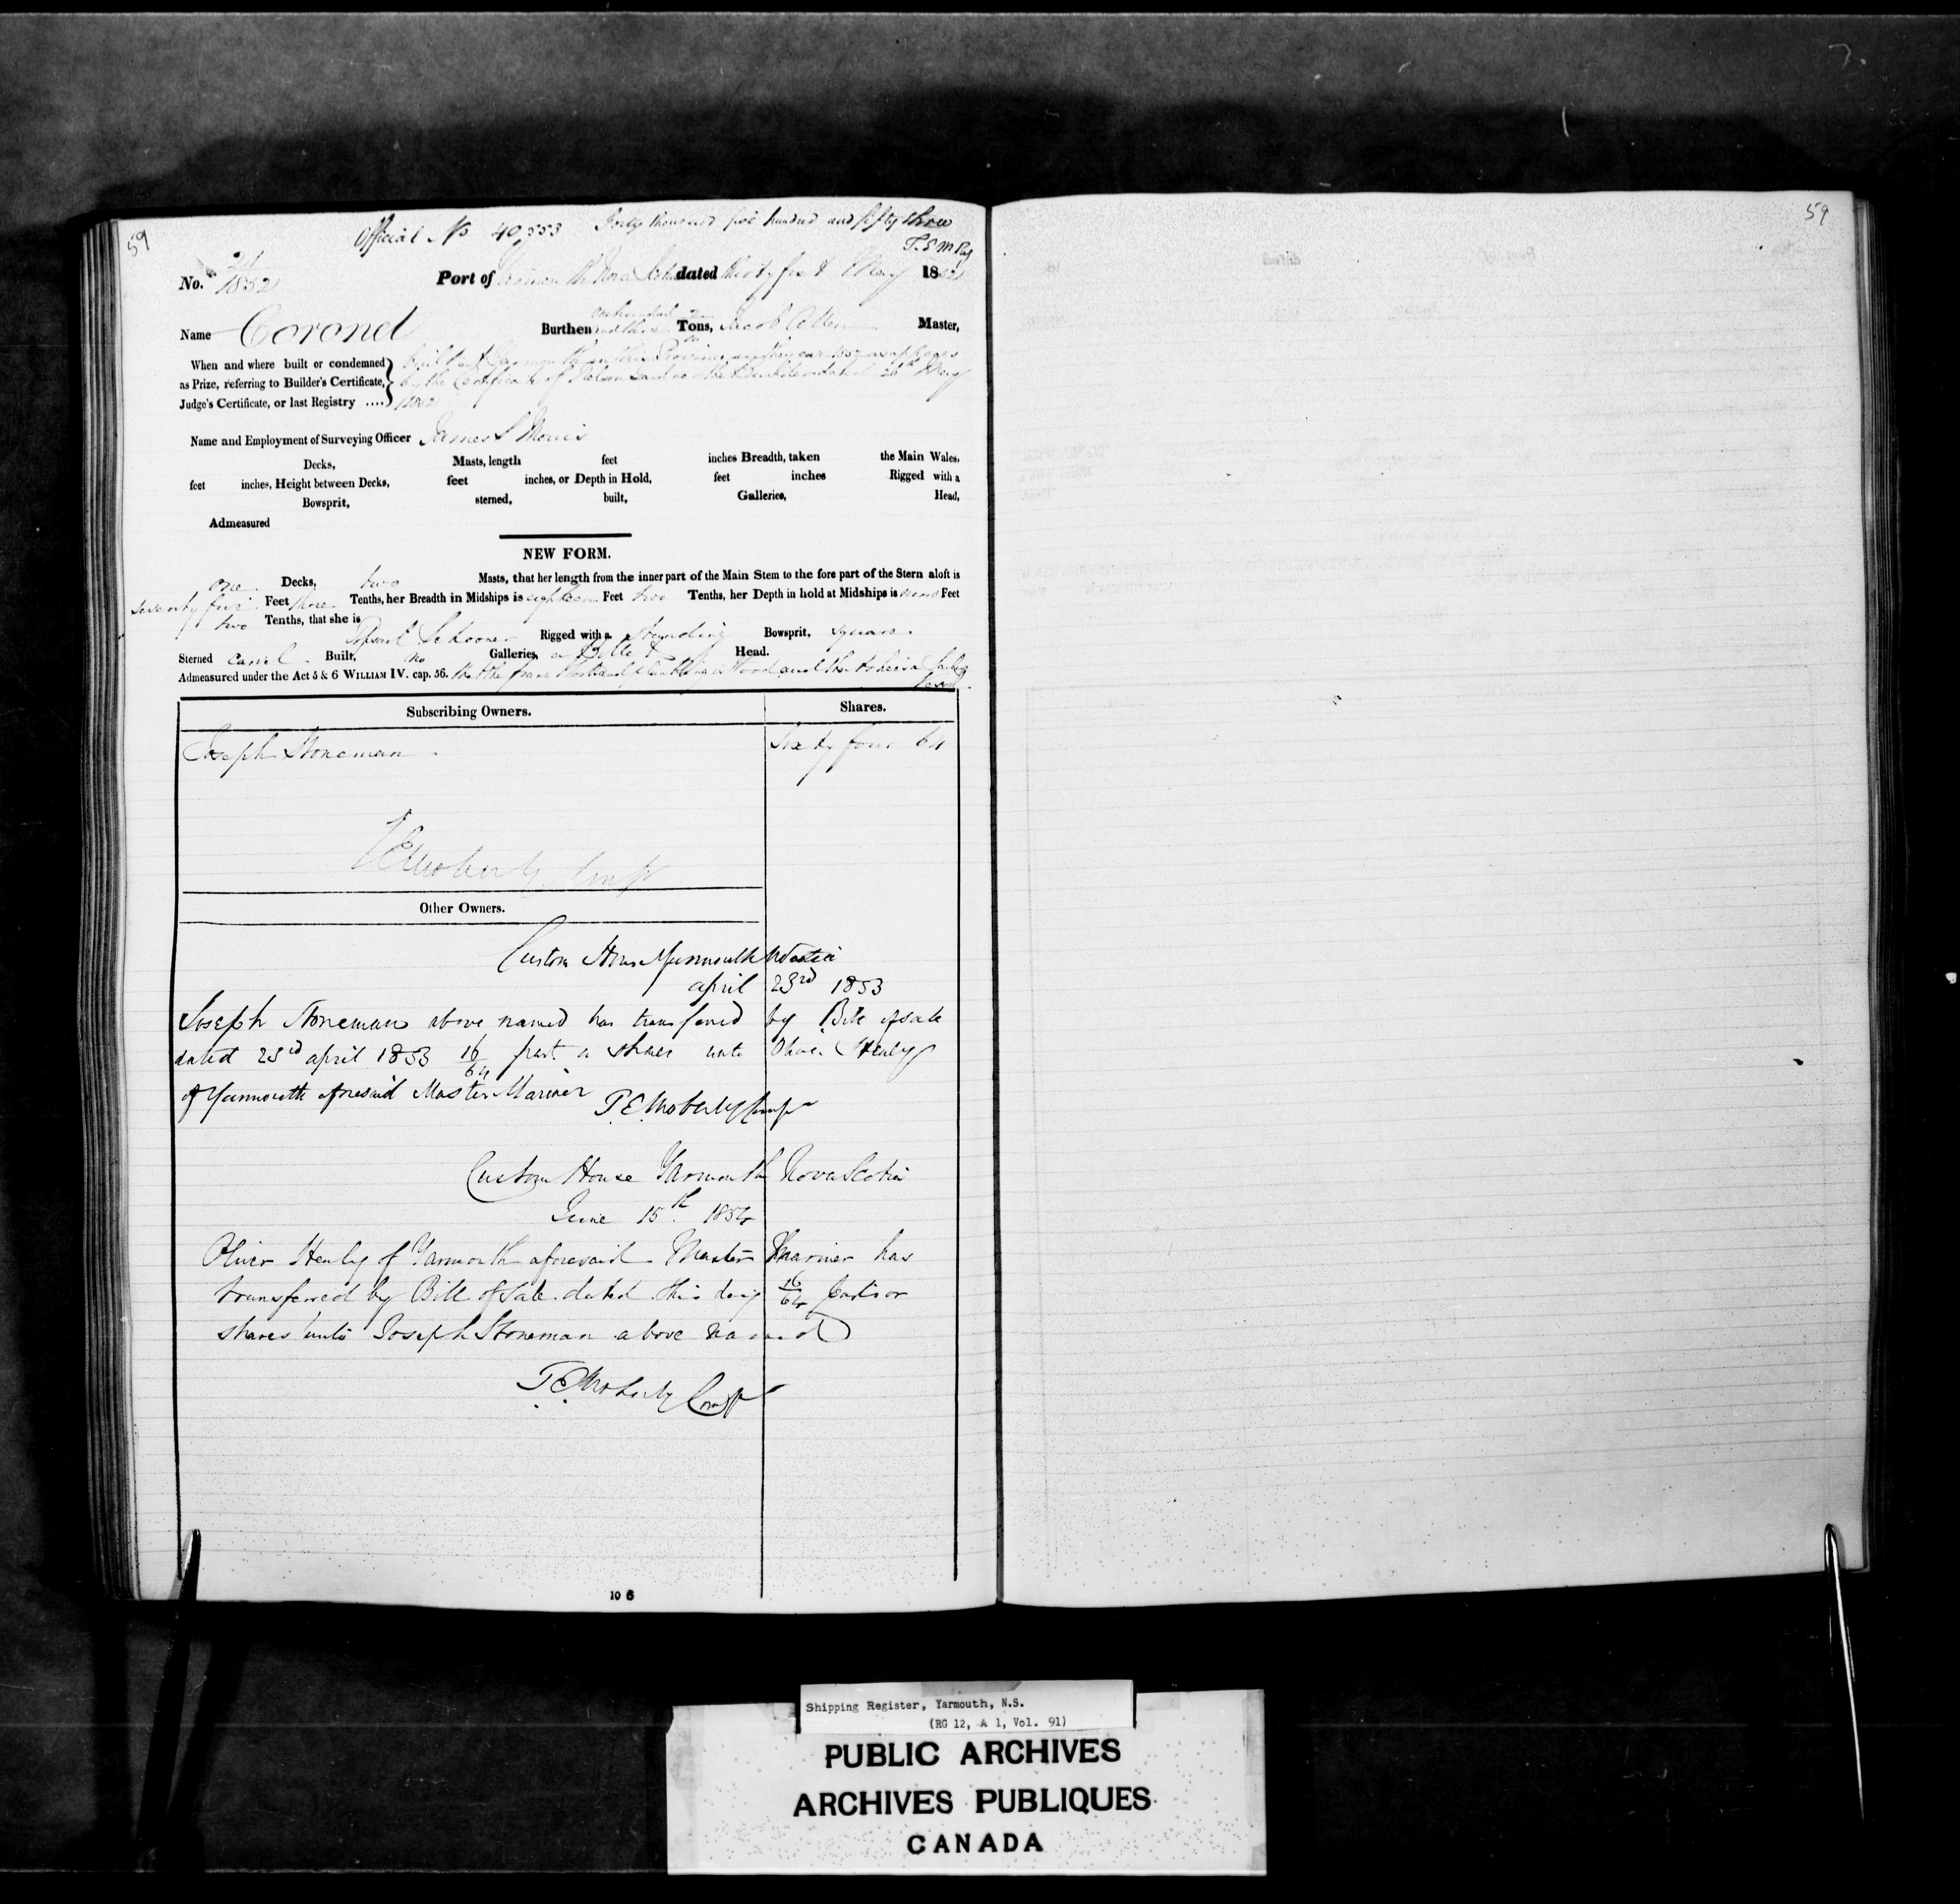 59
Official No 40,553 Forty thousand five hundred and fifty three
No. 21/1852 Port of Yarmouth Nova Scotia dated thirty first May 1852
Name Coronet Burthen one hundred and three Tons, Jacob Master,
When and where built or condemned built at Yarmouth in this Province in the year 1852 as appears
as Prize, referring to Builder's Certificate, by the Certificate of Nelson the Builder dated 26th May
Judge's Certificate, or last Registry .... 1852
Name and Employment of Surveying Officer James S Morris
Decks, Masts, length feet inches Breadth, taken the Main Wales,
feet inches, Height between Decks, feet inches, or Depth in Hold, feet inches Rigged with a
Bowsprit, sterned, built, Galleries, Head,
Admeasured
NEW FORM.
one Decks, two Masts, that her length from the inner part of the Main Stem to the fore part of the Stern aloft is
seventy five Feet three Tenths, her Breadth in Midships is eighteen Feet two Tenths, her Depth in hold at Midships is nine Feet
two Tenths, that she is Schooner Rigged with a standing Bowsprit, square
Sterned carvel Built, no Galleries, a Billet Head.
Admeasured under the Act 5 & 6 WILLIAM IV. cap. 56. that the frame work and planking is Wood and that she is a Sailing
Vessel
Subscribing Owners. Shares.
Joseph Stoneman Sixty four 64
T E Moberly Compr
Other Owners.
Custom House Yarmouth NScotia
april 23rd 1853
Joseph Stoneman above named has transferred by Bill of sale
dated 23rd april 1853 16/64 part or shares unto Oliver Henly
of Yarmouth aforesaid Master Mariner T. E. Moberly Compr
Custom House Yarmouth Nova Scotia
June 15th 1854
Oliver Henly of Yarmouth aforesaid Master Mariner has
transferred by Bill of Sale dated this day 16/64 parts or
shares unto Joseph Stoneman above named
T. E. Moberly Compr
10 6
59
Shipping Register, Yarmouth, N.S.
(RG 12, A 1, Vol. 91)
PUBLIC ARCHIVES
ARCHIVES PUBLIQUES
CANADA